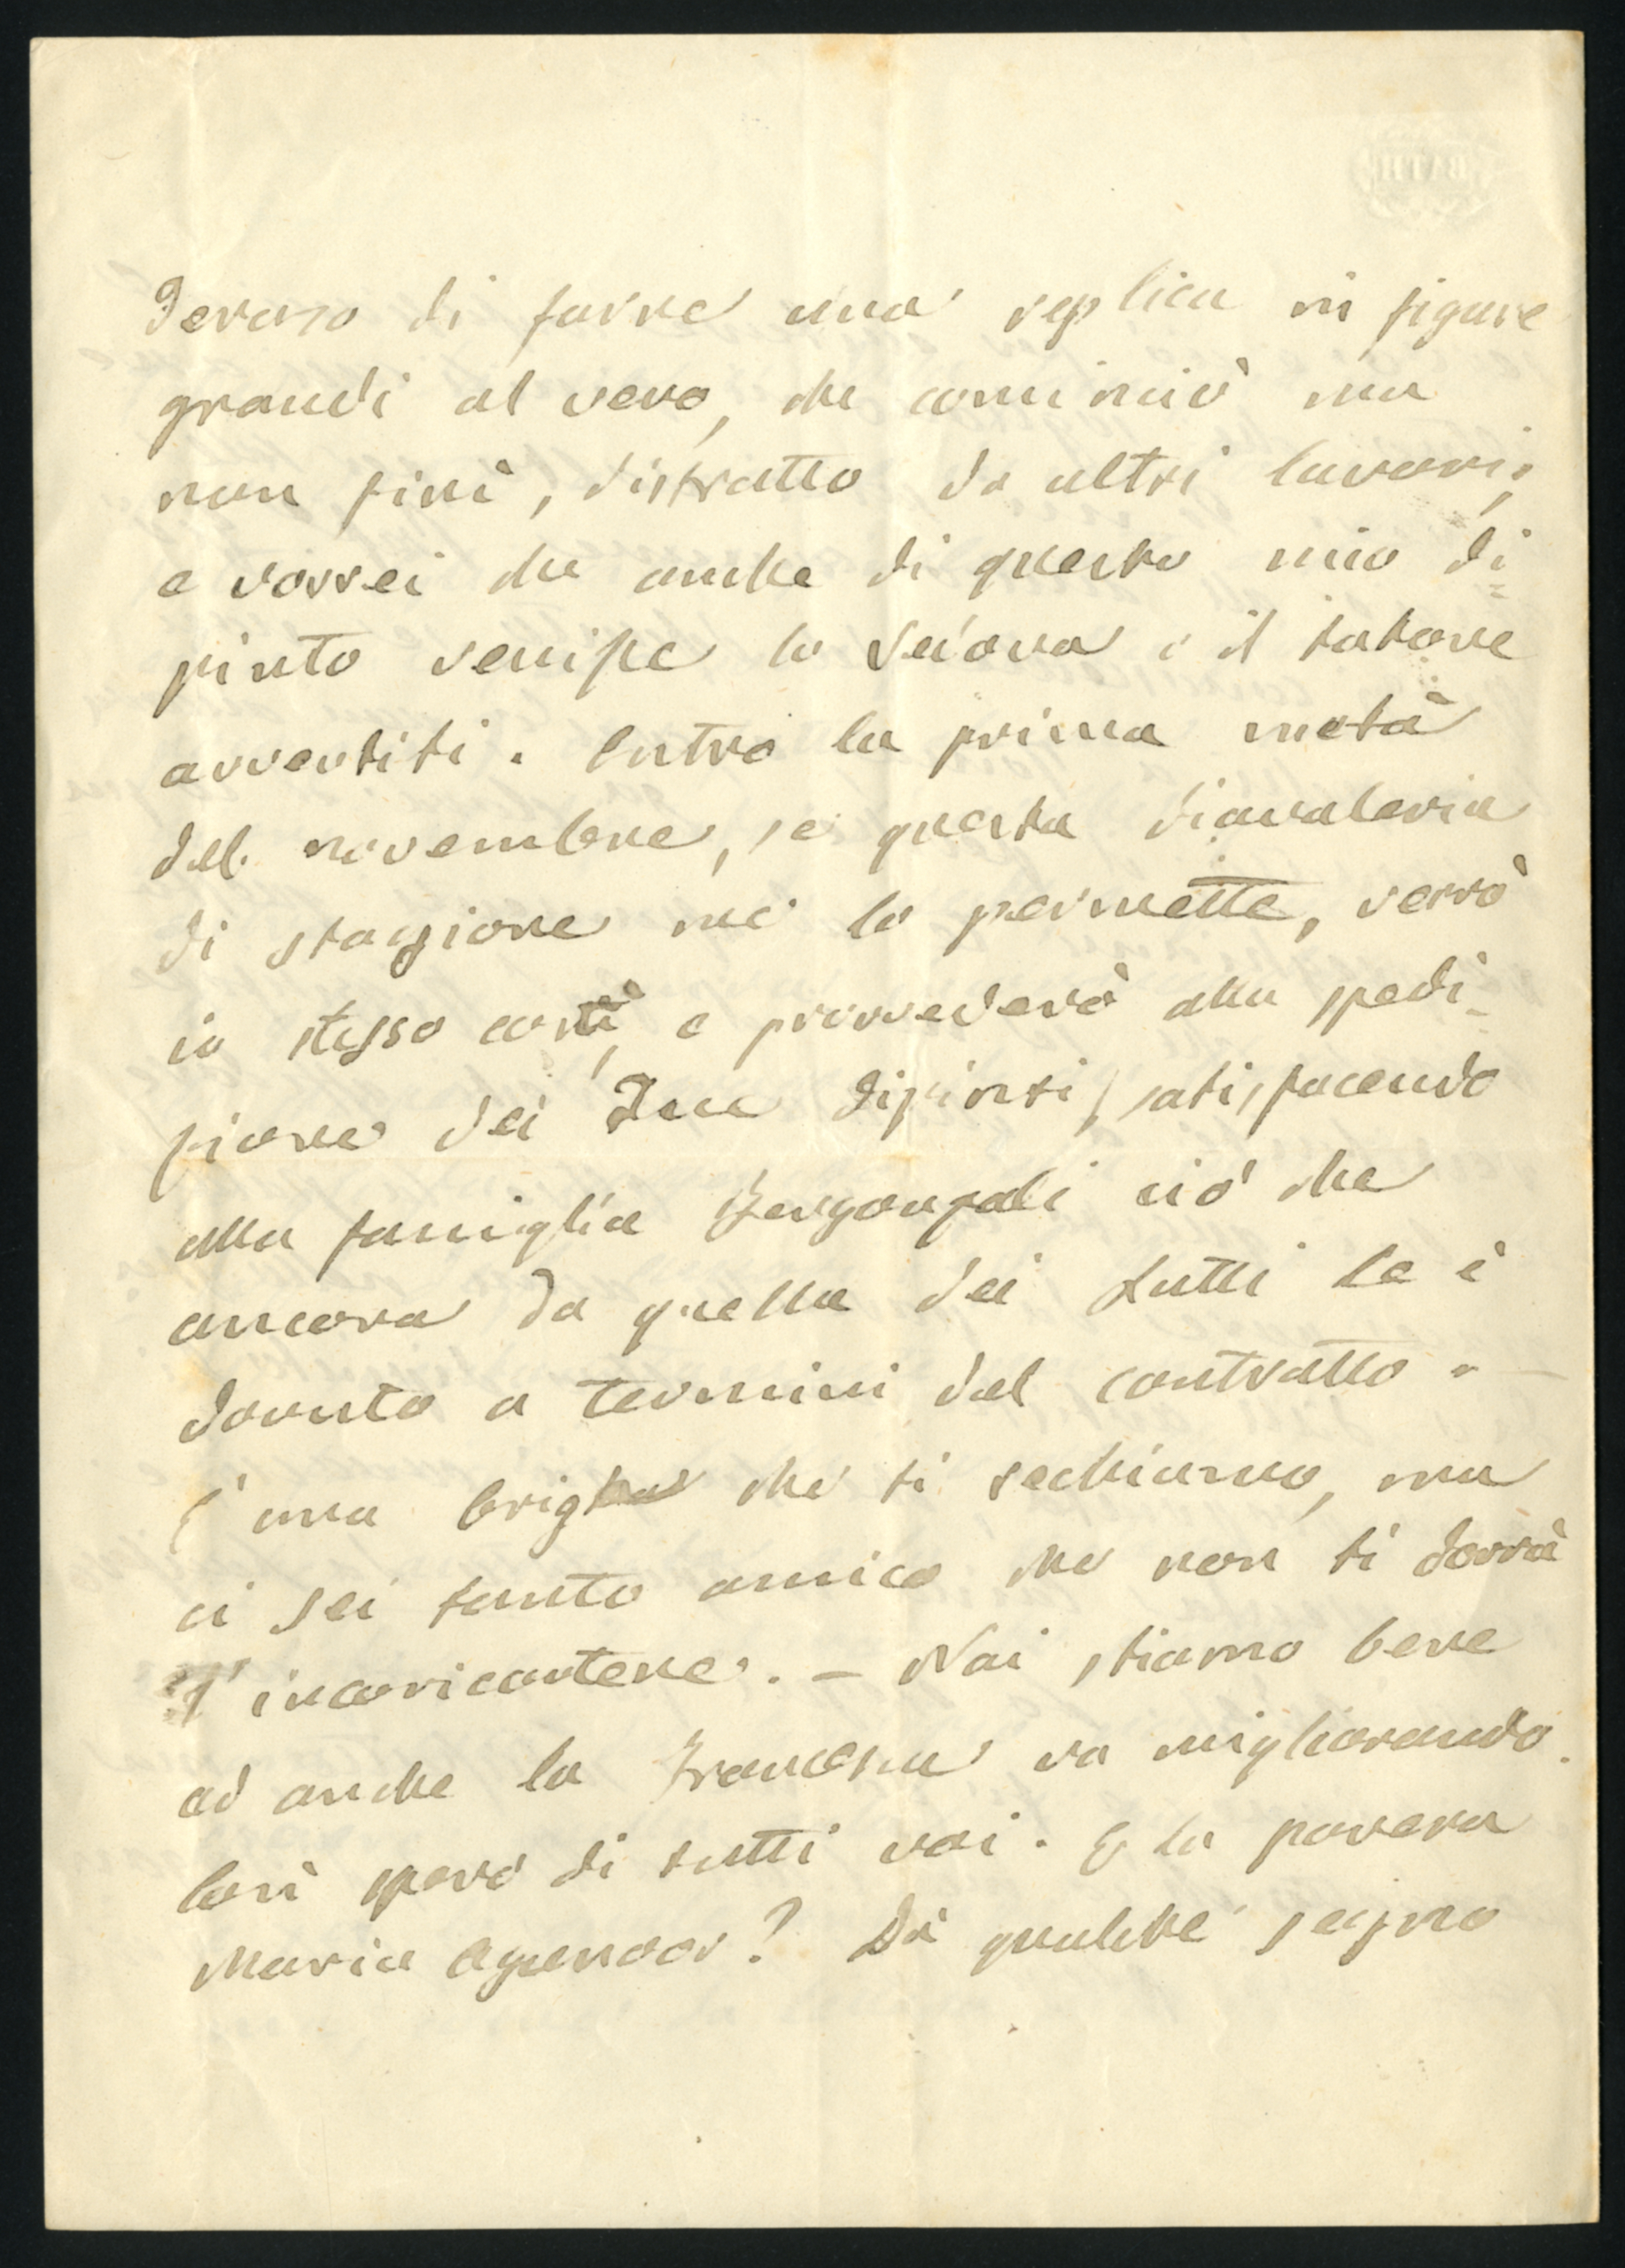 derano di farne una replica in figure
grandi al vero, che cominciò ma
non finì, distratto da altri lavori;
e vorrei che anche di questo mio di=
pinto venisse la vedova e il tutore
avvertiti. Entro la prima metà
del novembre, se questa diavoleria
di stagione me lo permette, verrò
io stesso costì, e provvederò alla spedi-
zione dei due dipinti, satisfacendo
alla famiglia Bergonzoli ciò che
ancora da quella dei Lutti le è
dovuto a termini del contratto. —
È una briga che ti rechiamo, ma
ci sei tanto amico che non ti dorrà
d'incaricartene. — Noi stiamo bene
ed anche la Francesca va migliorando.
Così spero di tutti voi. E la povera
Maria Aguenoor? Dà qualche segno